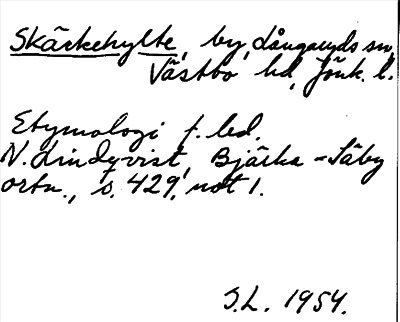 Skäckehylte, by, Långaryds sn,
Västbo hd, Jönk. l.
Etymologi f. led.
N. Lindqvist, Bjärka-Säby
ortn., s. 429, not 1.
S.L. 1954.